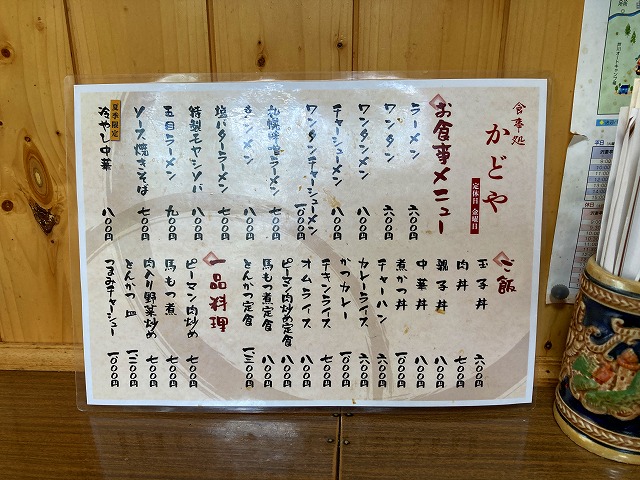 食事処
かどや
定休日 金曜日
お食事メニュー
ラーメン 六〇〇円
ワンタン 六〇〇円
ワンタンメン 八〇〇円
チャーシューメン 八〇〇円
ワンタンチャーシューメン 一〇〇〇円
札幌味噌ラーメン 七〇〇円
タンメン 八〇〇円
塩バターラーメン 七〇〇円
特製モヤシソバ 八〇〇円
五目ラーメン 九〇〇円
ソース焼きそば 七〇〇円
夏季限定
冷やし中華 八〇〇円
ご飯
玉子丼 六〇〇円
肉丼 七〇〇円
親子丼 八〇〇円
中華丼 八〇〇円
煮かつ丼 一〇〇〇円
チャーハン 六〇〇円
カレーライス 六〇〇円
かつカレー 一〇〇〇円
チキンライス 七〇〇円
オムライス 八〇〇円
ピーマン肉炒め定食 八〇〇円
馬もつ煮定食 八〇〇円
とんかつ定食 一三〇〇円
一品料理
ピーマン肉炒め 七〇〇円
馬もつ煮 七〇〇円
肉入り野菜炒め 七〇〇円
とんかつ皿 一二〇〇円
つまみチャーシュー 一〇〇〇円